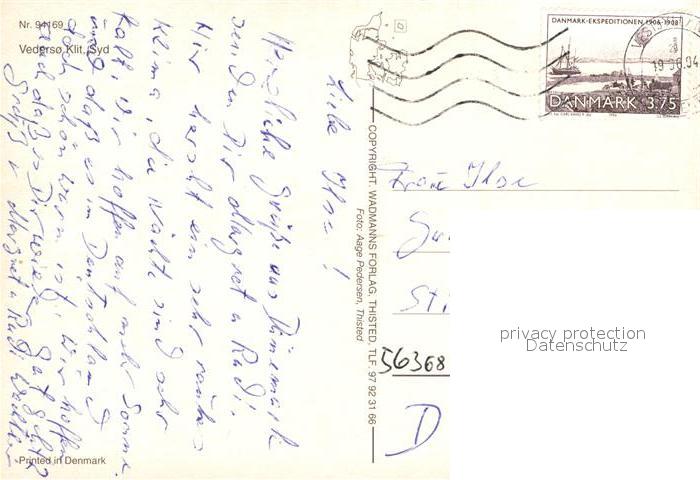 Nr. 94169
Vedersø Klit, Syd
Liebe Ilse!
Herzliche Grüße aus Dänemark
senden Dir Margret u Rudi.
Hier herrscht ein sehr rauhes
Klima, die Nächte sind sehr
kalt, wir hoffen auf mehr Sonne.
und daß es in Deutschland
doch schön warm ist. Wir hoffen
daß es Dir wieder gut geht
Gruß v. Margret u Rudi
Printed in Denmark
COPYRIGHT. WADMANNS FORLAG, THISTED, TLF. 97 92 31 66
Foto: Aage Pedersen, Thisted
DANMARK-EKSPEDITIONEN 1906-1908
DANMARK 3.75
Frau Ilse
56368
D
privacy protection
Datenschutz